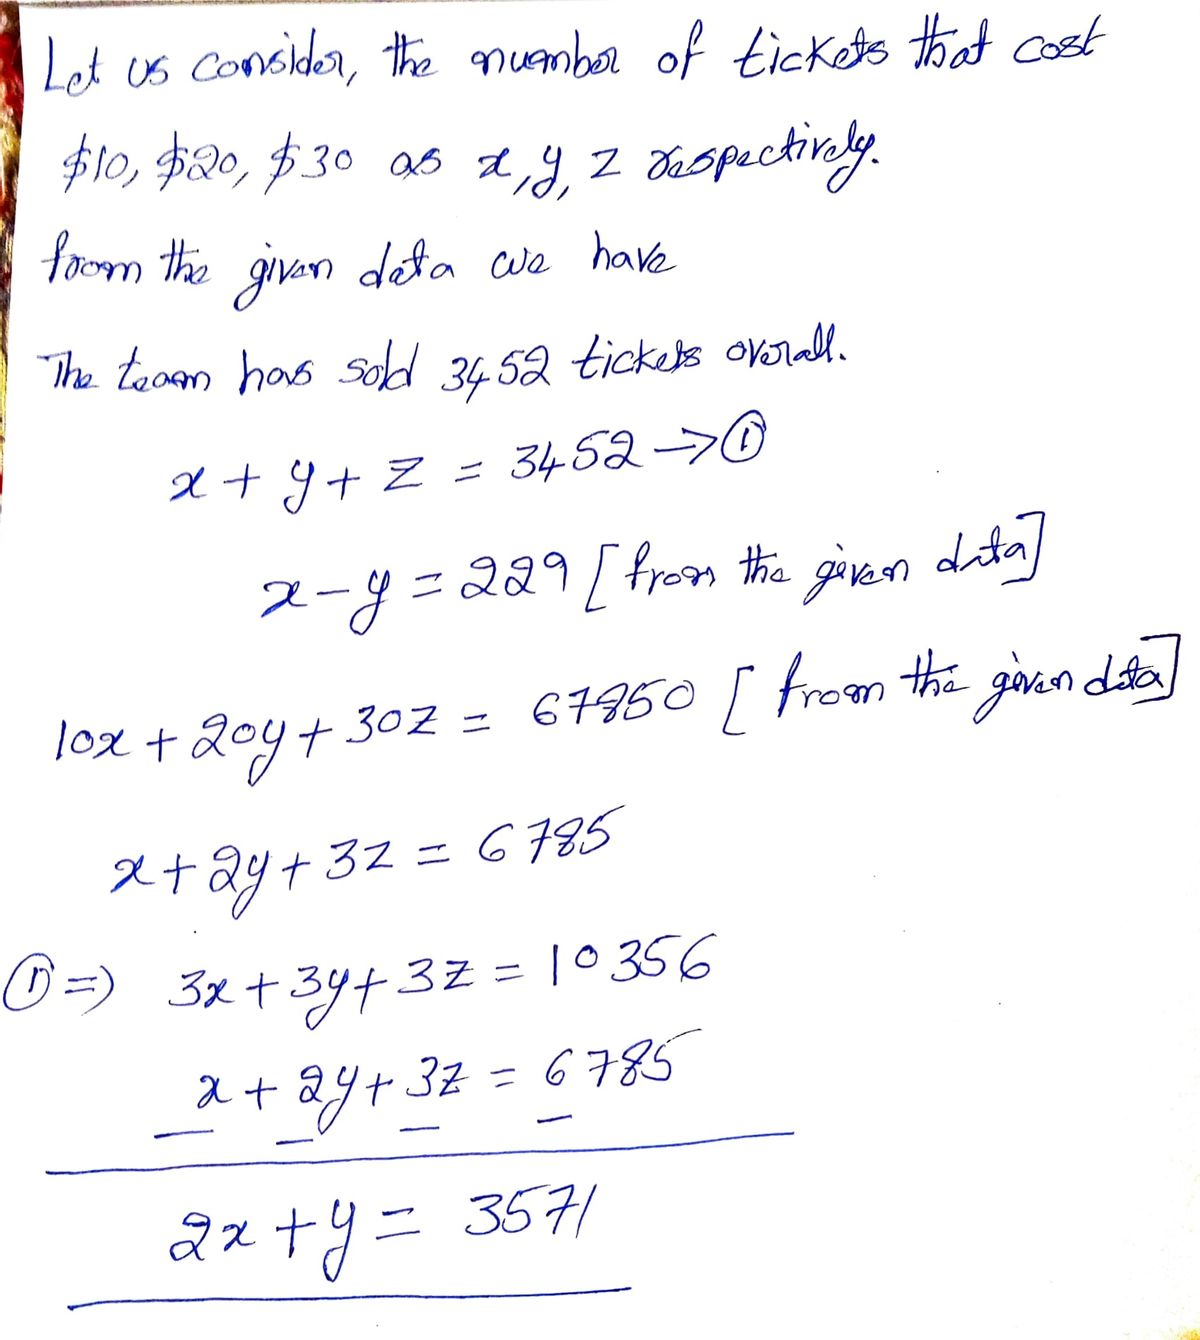 Let us consider, the number of tickets that cost
$10, $20, $30 as x, y, z respectively.
from the given data we have
The team has sold 3452 tickets overall.
x + y + z = 3452 → ①
x - y = 229 [from the given data]
10x + 20y + 30z = 67850 [from the given data]
x + 2y + 3z = 6785
① ⇒ 3x + 3y + 3z = 10356
x + 2y + 3z = 6785
— — — —
2x + y = 3571